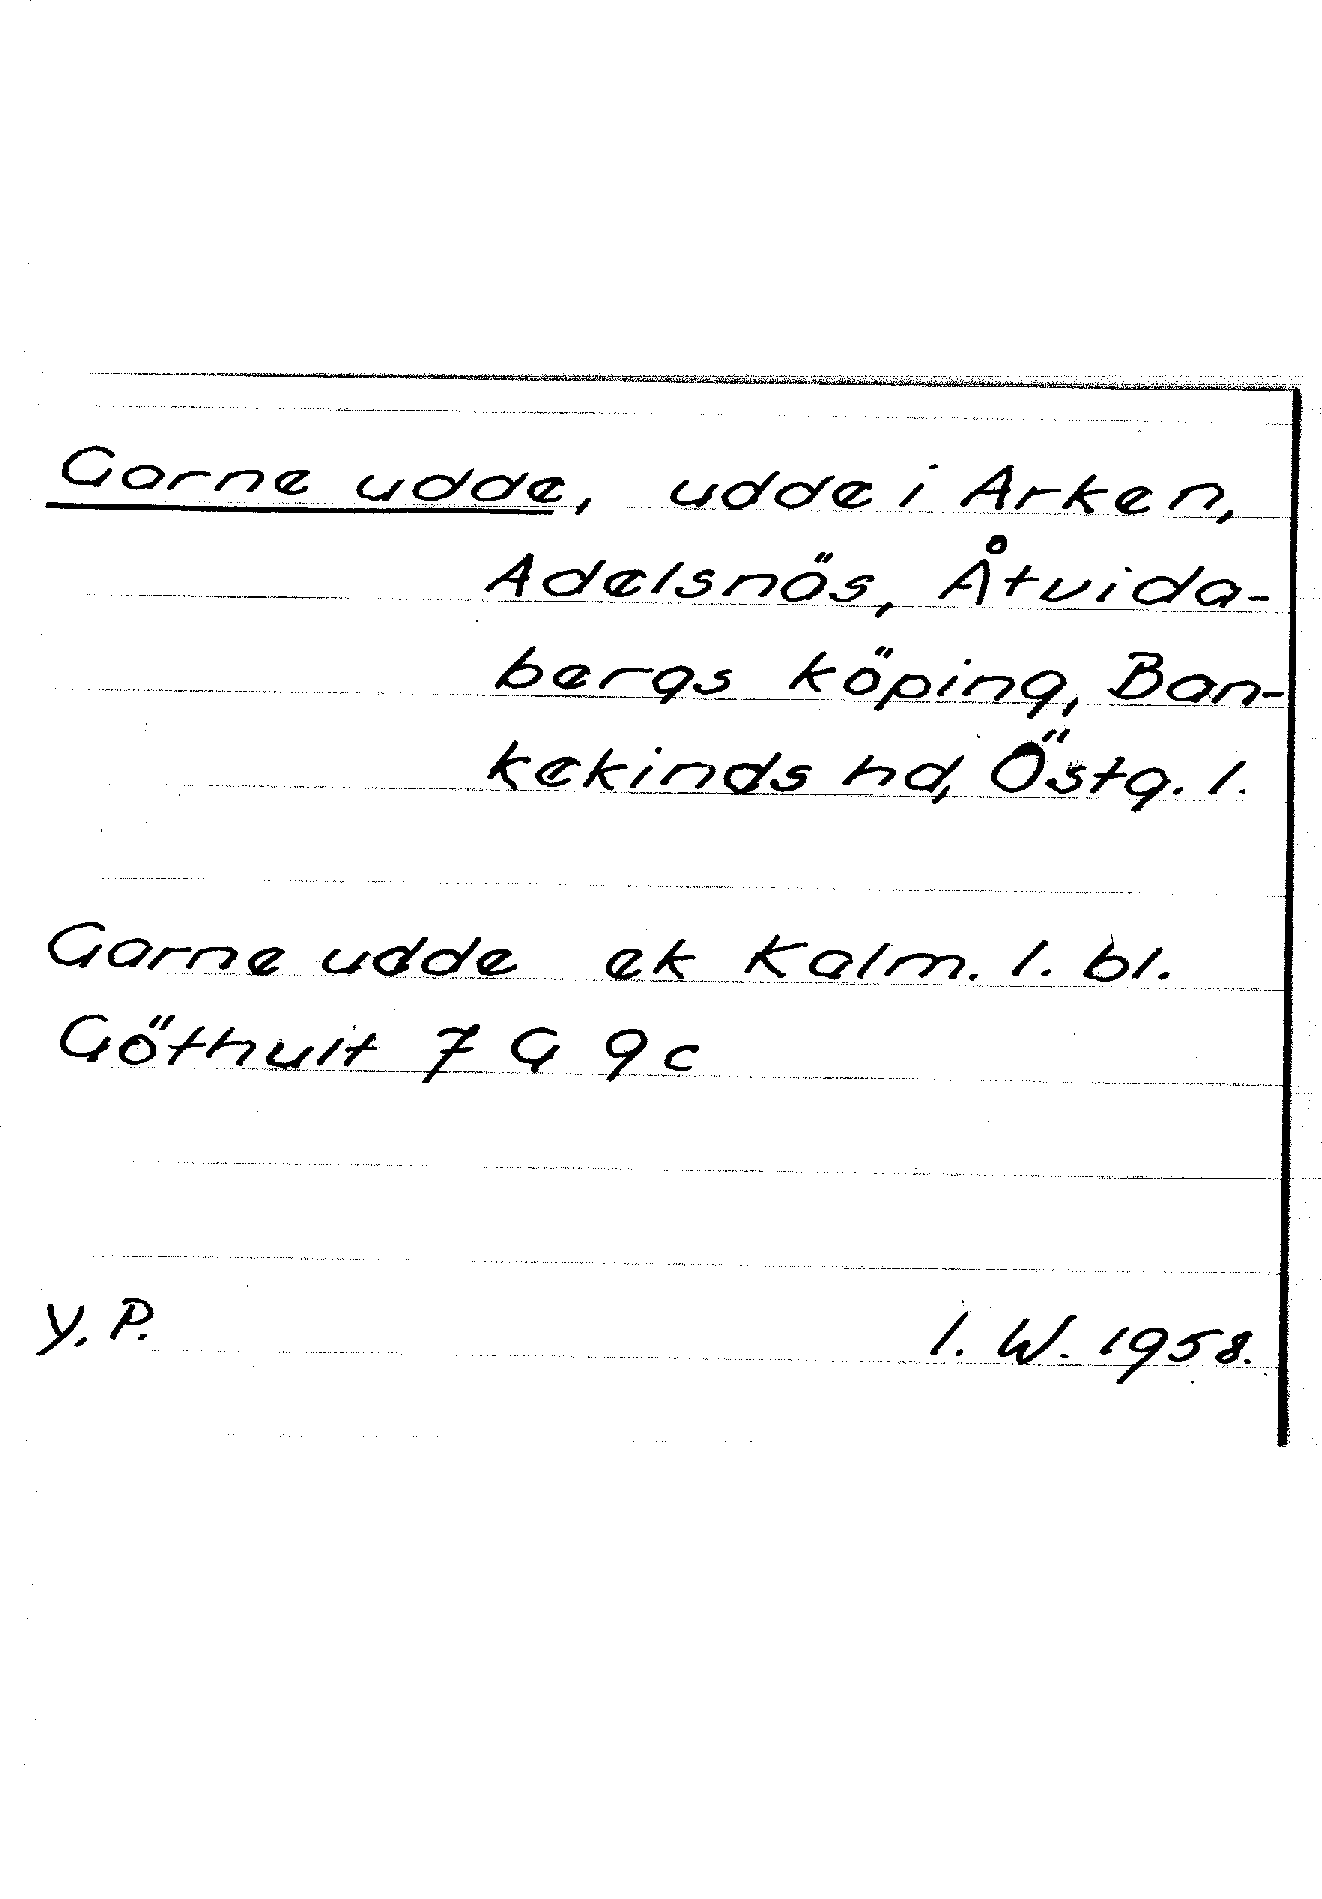 Garne udde, udde i Arken,
Adelsnäs, Åtvida-
bergs köping, Ban-
kekinds hd, Östg. l.
Garne udde ek Kalm. l. bl.
Göthult 7 G 9c
Y. P. I. W. 1958.